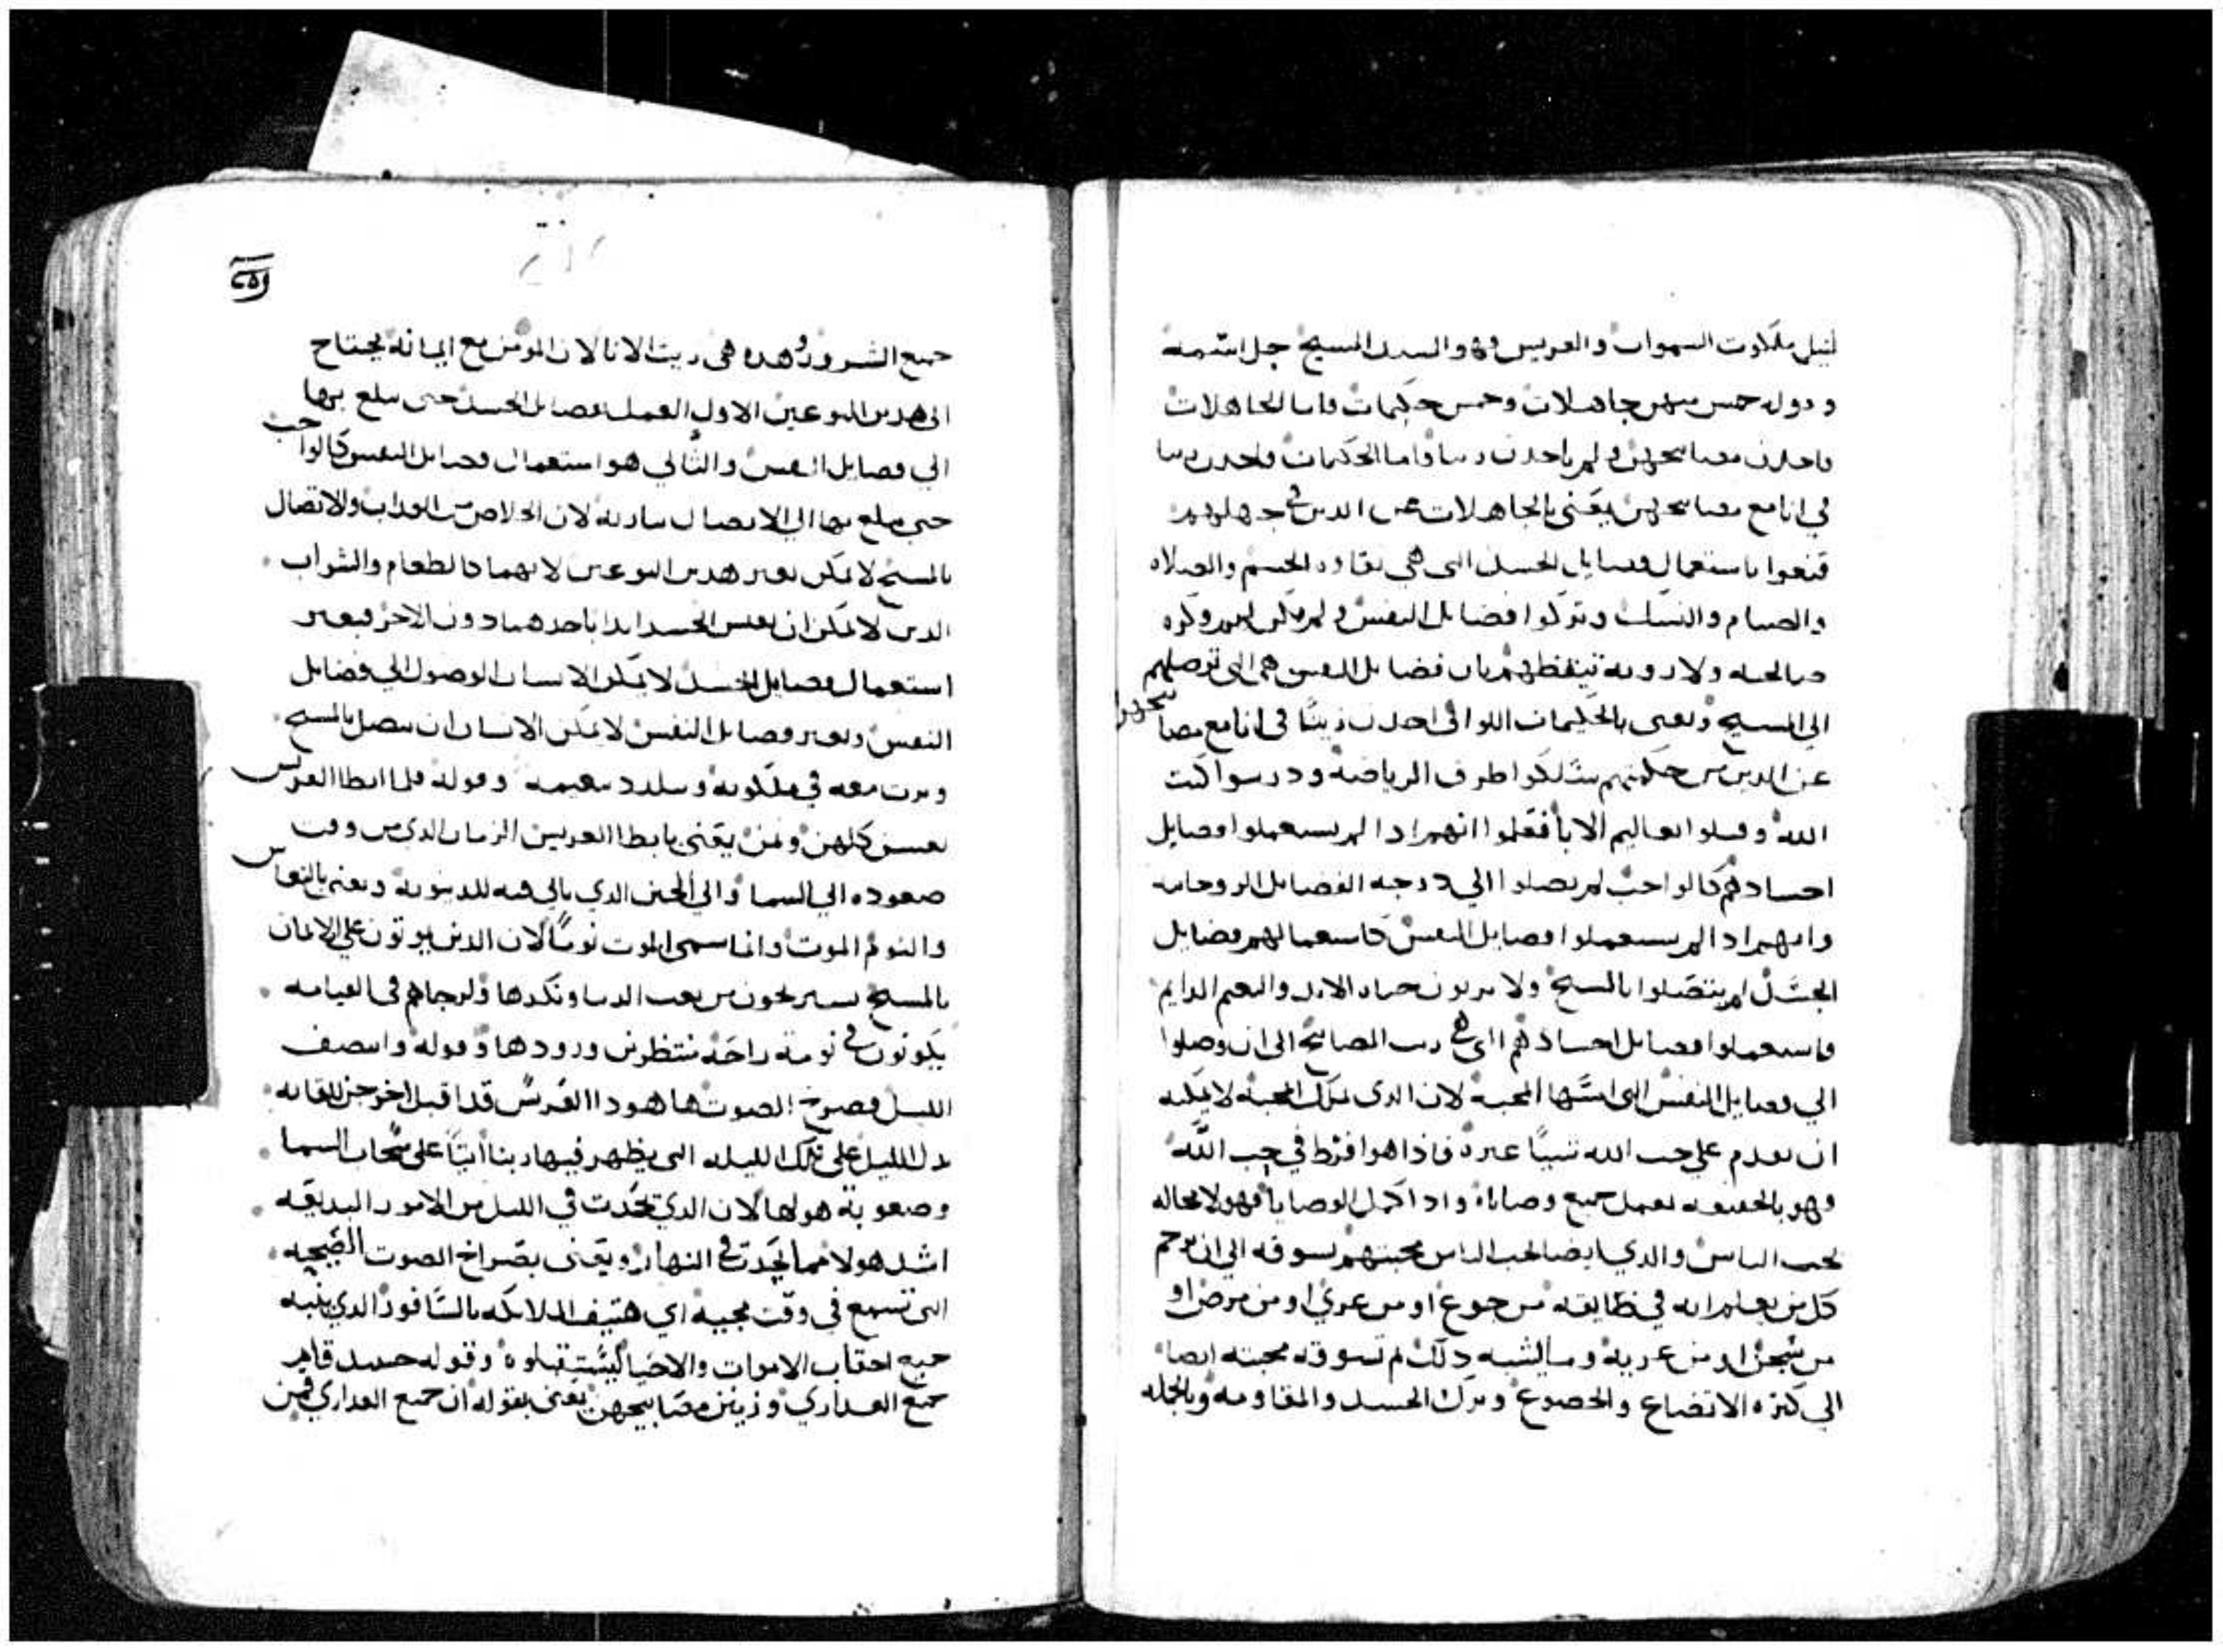 لنيل ملكوت السموات والعريس فهو السيد المسيح جل اسمه
وقوله خمس منهن جاهلات وخمس حكيمات فاما الجاهلات
فاخذن مصابيحهن ولم ياخذن زيتا واما الحكيمات فاخذن زيتا
في انا مع مصابيحهن يعني بالجاهلات عن الدين في جهلهم
قنعوا باستعمال فضايل الجسد التي هي نقاوه الجسم والصلاه
والصيام والنسك وتركوا فضايل النفس ولم يكن لهم فكره
صالحه ولا رويه تيقظهم بان فضايل النفس هي التي توصلهم
الي المسيح ويعني بالحكيمات اللواتي اخذن زيتا في انا مع مصابيحهن
عن الدين من حكمتهم سلكوا طرق الرياضه ودرسوا كتب
الله وقبلوا تعاليم الابا فعلموا انهم اذا لم يستعملوا فضايل
اجسادهم كالواجب لم يصلوا الي درجه الفضايل الروحانيه
وانهم اذا لم يستعملوا فضايل النفس كاستعمالهم فضايل
الجسد لم يتصلوا بالمسيح ولا يرثون حياه الابد والنعيم الدايم
فاستعملوا فضايل اجسادهم التي هي زيت المصابيح الي ان وصلوا
الي فضايل النفس التي اسها المحبه لان الذي يملك المحبه لا يمكنه
ان يقدم علي حب الله شيا غيره فاذا هو افرط في حب الله
فهو بالحقيقه يعمل جميع وصاياه واذا اكمل الوصايا فهو لا محاله
يحب الناس والذي ايضا يحب الناس محبتهم تسوقه الي ان يرحم
كل من يعلم انه في ضايقه من جوع او من عري او من مرض او
من سجن او من غربه وما يشبه ذلك ثم تسوقه محبته ايضا
الي كثره الاتضاع والخضوع وترك الحسد والمقاومه وبالجمله
جميع الشرور وهذه هي زيت الانا لان المومن مع ايمانه يحتاج
الي هذين النوعين الاول العمل بفضايل الجسد حتي يبلغ بها
الي فضايل النفس والثاني هو استعمال فضايل النفس كالواجب
حتي يبلغ بها الي الاتصال بباريه لان الخلاص من العذاب والاتصال
بالمسيح لا يمكن بغير هذين النوعين لانهما كالطعام والشراب
الذين لا يمكن ان يعيش الجسد ابدا باحدهما دون الاخر فبغير
استعمال فضايل الجسد لا يمكن الانسان الوصول الي فضايل
النفس وبغير فضايل النفس لا يمكن الانسان ان يتصل بالمسيح
ويرث معه في ملكوته ويتلذذ بنعيمه وقوله فلما ابطا العريس
نعسن كلهن ونمن يعني بابطا العريس الزمان الذي من وقت
صعوده الي السما والي الحين الذي ياتي فيه للدينونه ويعني بالنعاس
والنوم الموت وانما سمي الموت نوما لان الذين يموتون علي الايمان
بالمسيح يستريحون من تعب الدنيا ونكدها ولرجاهم في القيامه
يكونون في نومة راحة منتظرين ورودها وقوله وانتصف
الليل فصرخ الصوت ها هوذا العريس قد اقبل اخرجن للقايه
دل الليل علي تلك الليله التي يظهر فيها ربنا اتيا علي سحاب السما
وصعوبة هولها لان الذي يحدث في الليل من الامور البديعه
اشد هولا مما يحدث في النهار ويعني بصراخ الصوت الضجيه
التي تسمع في وقت مجييه اي هتيف الملايكه بالسافور الذي ينبه
جميع احقاب الاموات والاحيا ليستقبلوه وقوله حينيذ قام
جميع العذاري وزينن مصابيحهن يعني بقوله ان جميع العذاري قمن